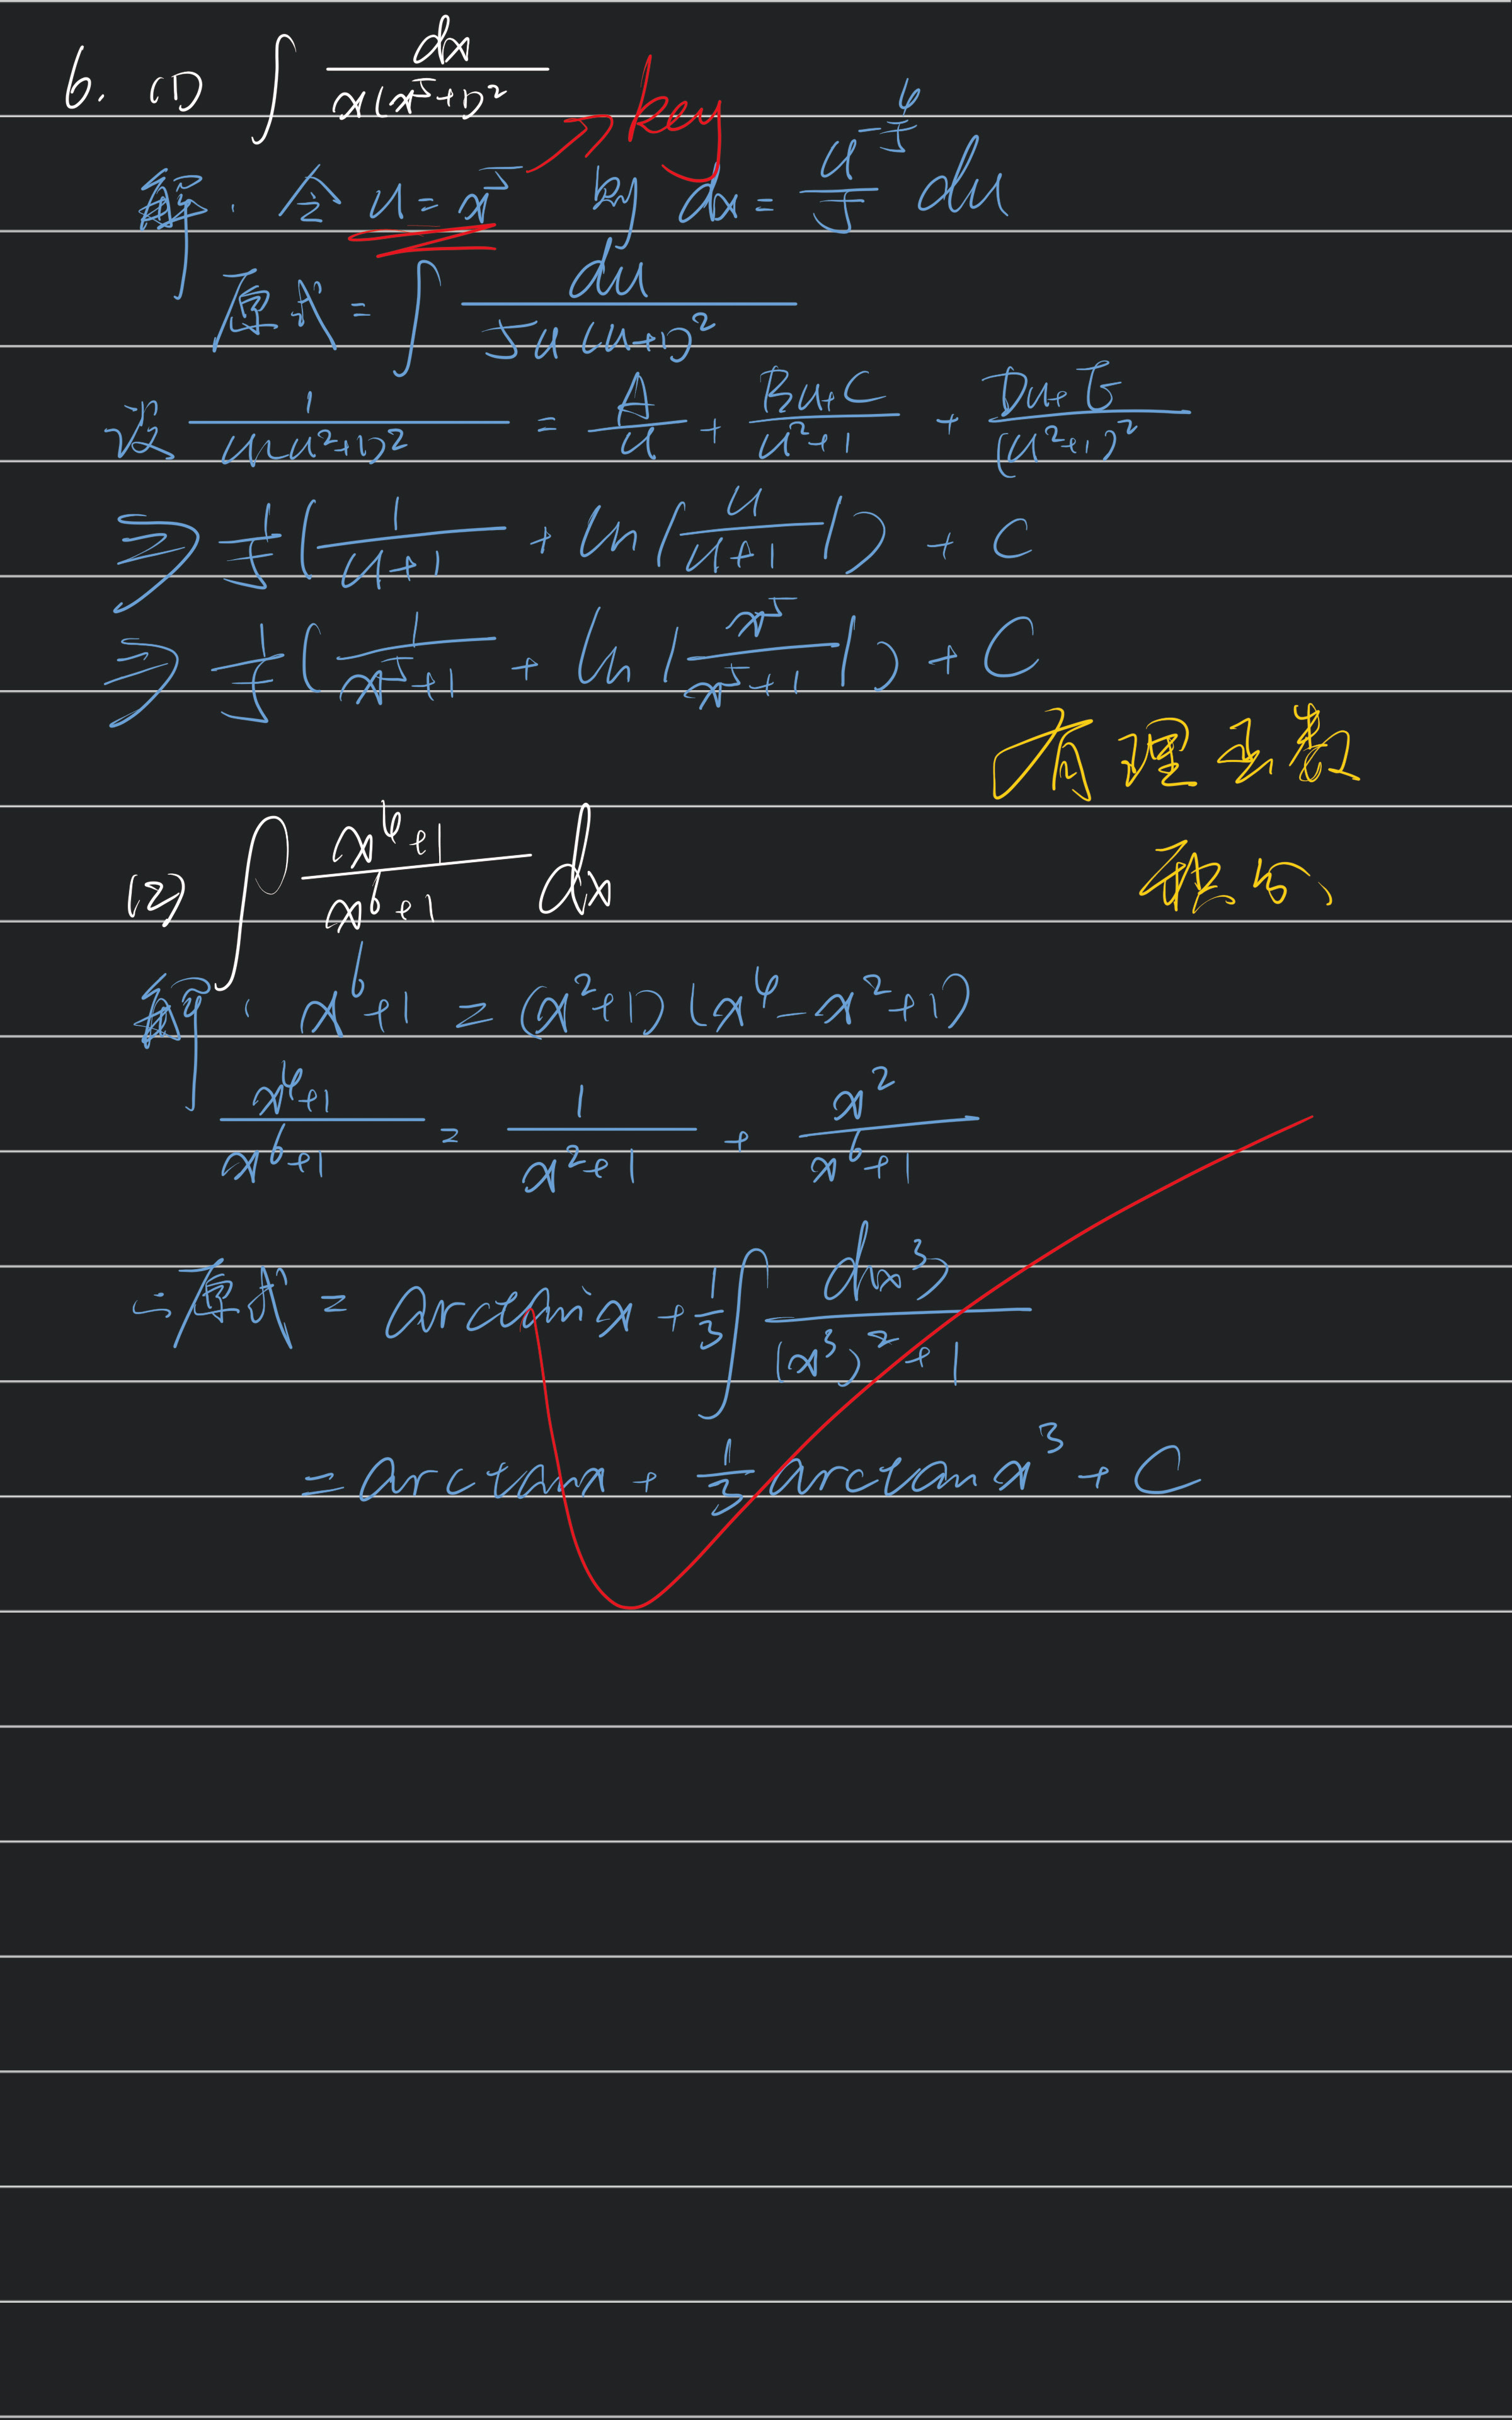 6. (1) ∫ dx / x(x^5+1)^2
key
解: 令 u = x^5 则 dx = u^(-4/5) / 5 du
原式 = ∫ du / 5u(u+1)^2
设 1 / u(u^2+1)^2 = A/u + (Bu+C)/(u^2+1) + (Du+E)/(u^2+1)^2
⇒ 1/5 ( 1/(u+1) + ln | u/(u+1) | ) + C
⇒ 1/5 ( 1/(x^5+1) + ln | x^5/(x^5+1) | ) + C
有理函数
积分、
(2) ∫ (x^4+1)/(x^6+1) dx
解: x^6+1 = (x^2+1)(x^4-x^2+1)
(x^4+1)/(x^6+1) = 1/(x^2+1) + x^2/(x^6+1)
∴ 原式 = arctan x + 1/3 ∫ d(x^3) / (x^3)^2+1
= arctan x + 1/3 arctan x^3 + C